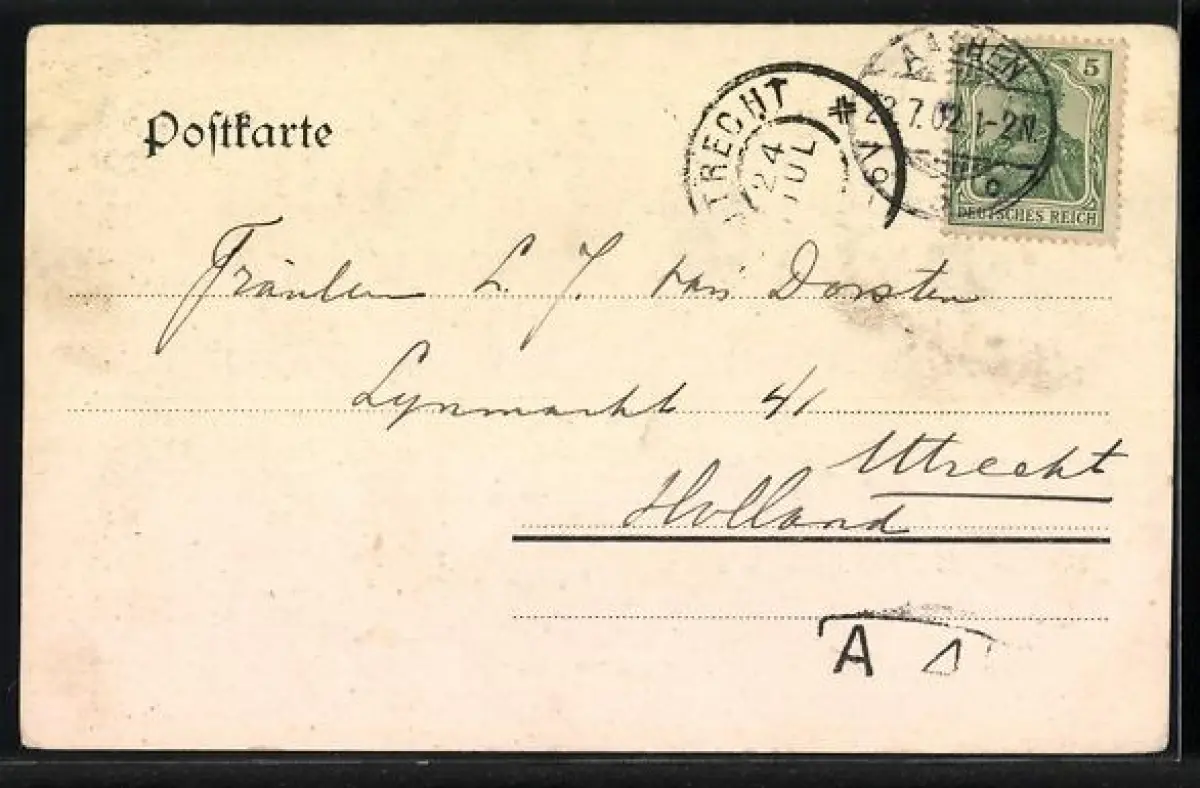 Postkarte
UTRECHT
24
JUL
AACHEN
7.02.1-2N.
5
DEUTSCHES REICH
Fräulein L. J. van Dorsten
Lynmarkt 41
Utrecht
Holland
A